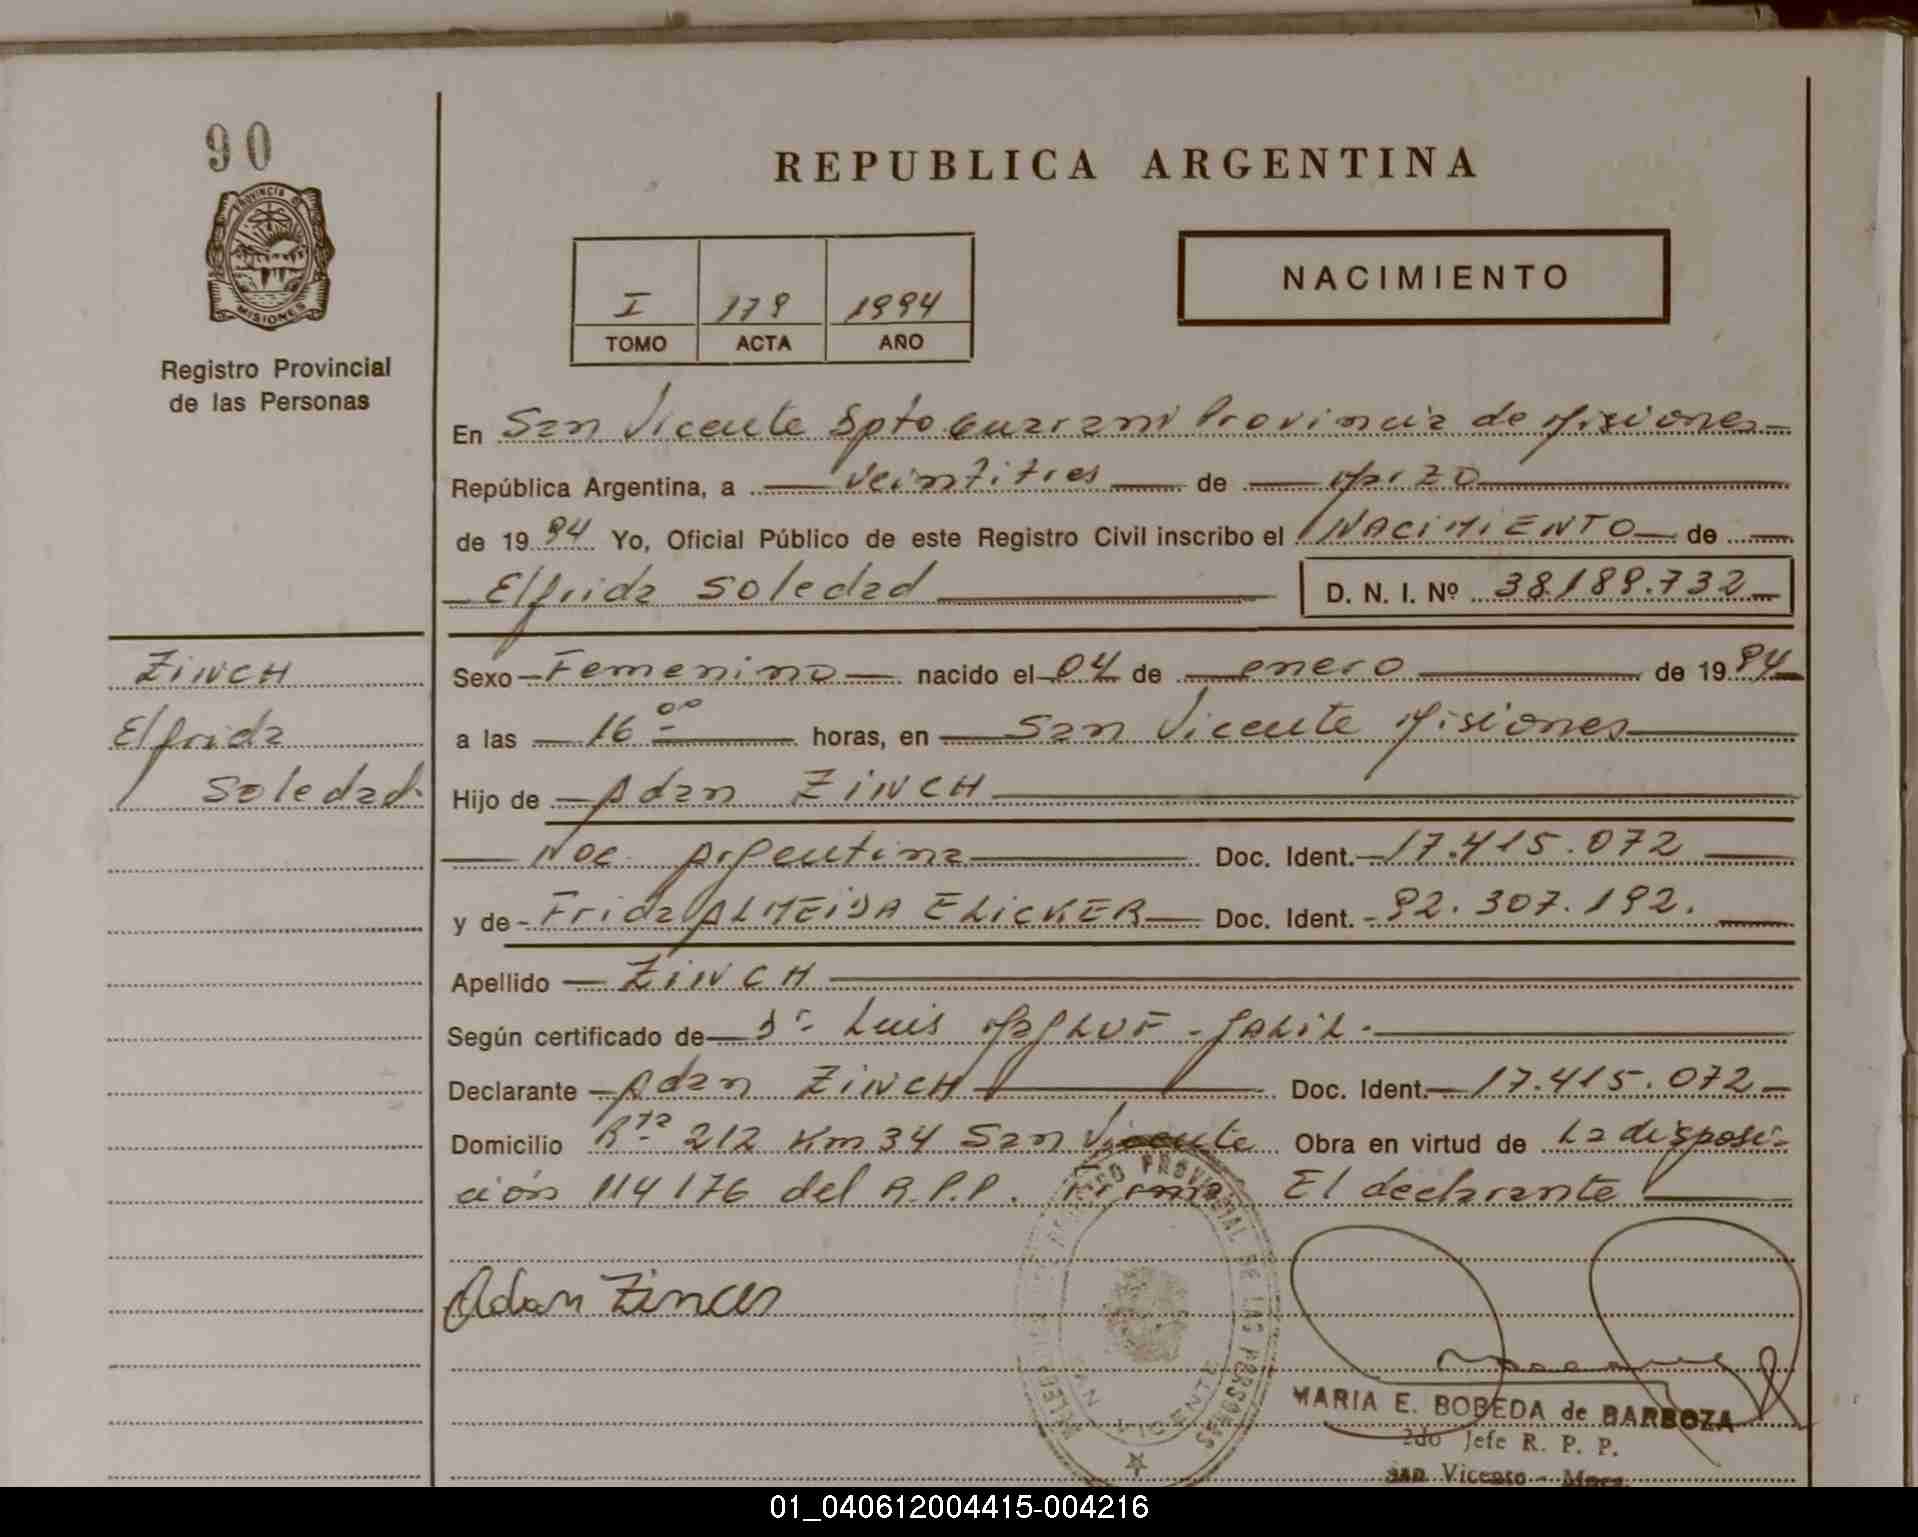 90
PROVINCIA DE
MISIONES
Registro Provincial
de las Personas
REPUBLICA ARGENTINA
NACIMIENTO
I 179 1994
TOMO ACTA AÑO
En San Vicente Dpto Guarani Provincia de Misiones
República Argentina, a veintitres de Marzo
de 1994 Yo, Oficial Público de este Registro Civil inscribo el NACIMIENTO de
Elfrida Soledad D. N. I. Nº 38.189.732
ZINCH
Elfrida
Soledad
Sexo Femenino nacido el 04 de enero de 1994
a las 16 00 horas, en San Vicente Misiones
Hijo de Adan ZINCH
Nac. Argentina Doc. Ident. 17.415.072
y de Frida ALMEIDA ELICKER Doc. Ident. 92.307.192.
Apellido ZINCH
Según certificado de Dr. Luis MagLUF - JALIL.
Declarante Adan ZINCH Doc. Ident. 17.415.072
Domicilio Rta 212 Km 34 San Vicente Obra en virtud de La disposi-
ción 114176 del R.P.P. Firma El declarante
Adan
REGISTRO PROVINCIAL DE LAS PERSONAS
SAN VICENTE
MARIA E. BOBEDA de BARBOZA
2do Jefe R. P. P.
San Vicente - Mnes.
01_040612004415-004216